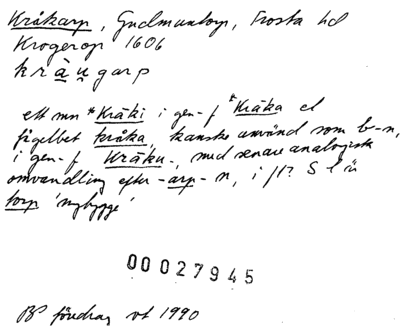 Kråkarp, Gudmuntorp, Frosta hd
Krogerop 1606
kràu̯garp
ett mn *Kráki i gen-f *Kráka el
fågelbet kråka, kanske använd som b-n,
i gen-f Kráku-, med senare analogisk
omvandling efter -arp-n, i f1? S l är
torp 'nybygge'
00027945
föredrag vt 1990